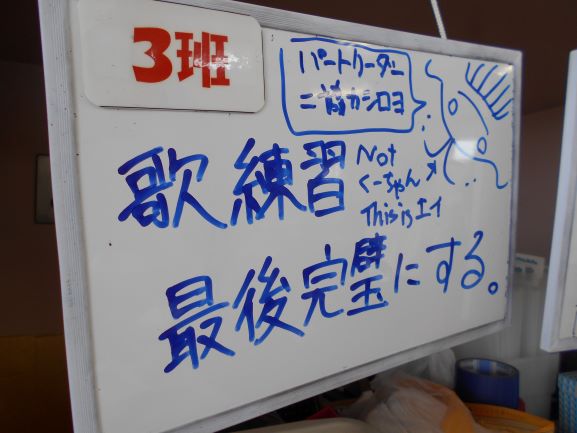 3班
パートリーダー
ニ前カシロヨ
歌練習
Not
くーちゃん
This is エイ
最後完璧にする。